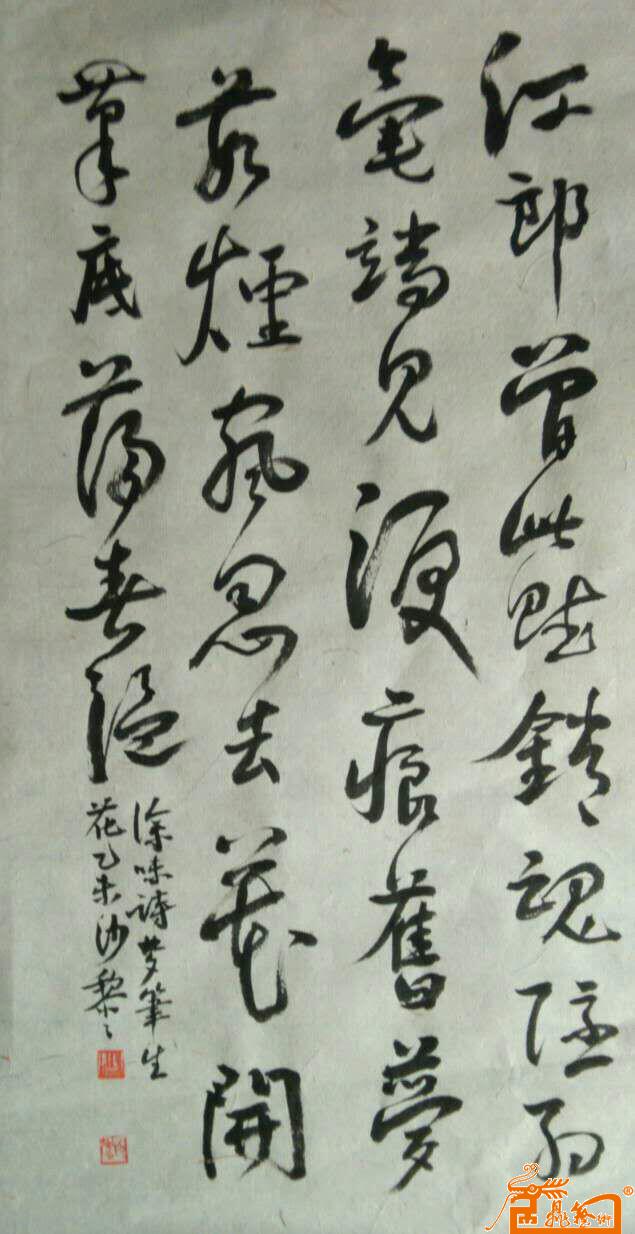 江郎曾此賦銷魂隱約
毫端見淚痕舊夢
若煙飄忽去花開
筆底蕩春溫
徐味詩夢筆生
花乙未沙黎